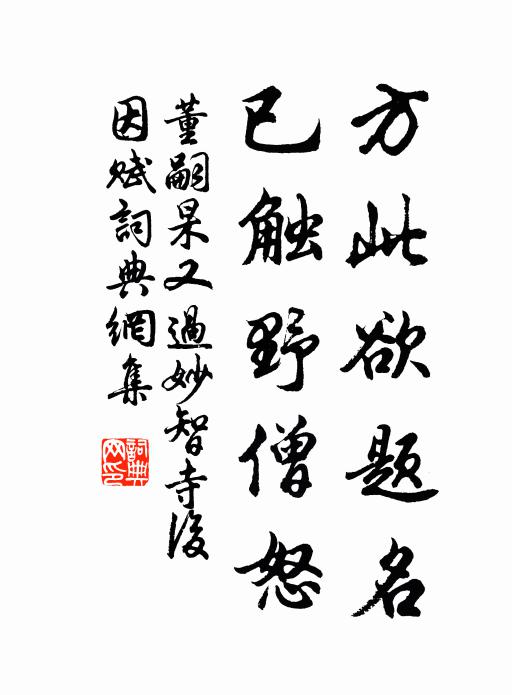 方此欲题名
已触野僧怒
董嗣杲又過妙智寺後
因赋詞典網集
詞典網印